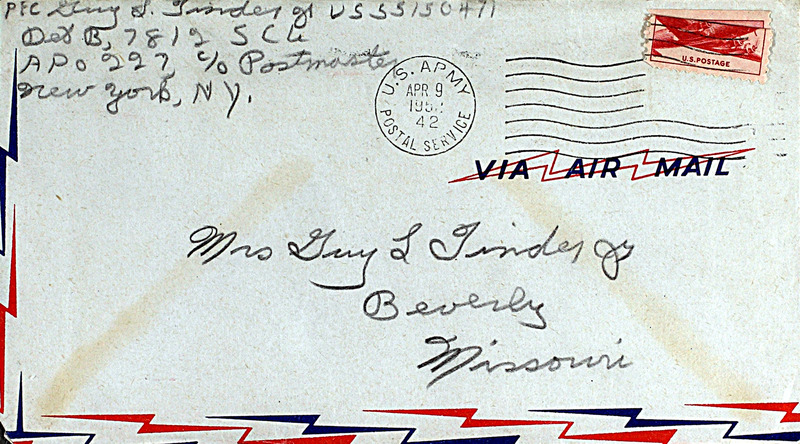 PFC Guy L. Tinder Jr US55150471
Det B, 7812 SCU
APO 227, c/o Postmaster
New York, NY.
U.S. ARMY
APR 9
42
POSTAL SERVICE
U.S. POSTAGE
VIA AIR MAIL
Mrs Guy L Tinder Jr
Beverly
Missouri